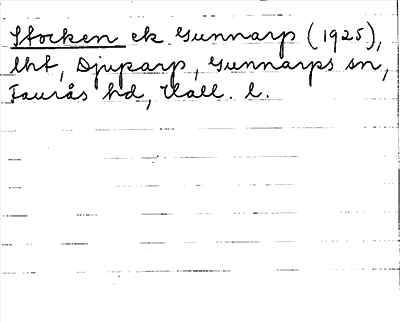 Stocken ek. Gunnarp (1925),
lht, Djuparp, Gunnarps sn,
Faurås hd, Hall. l.